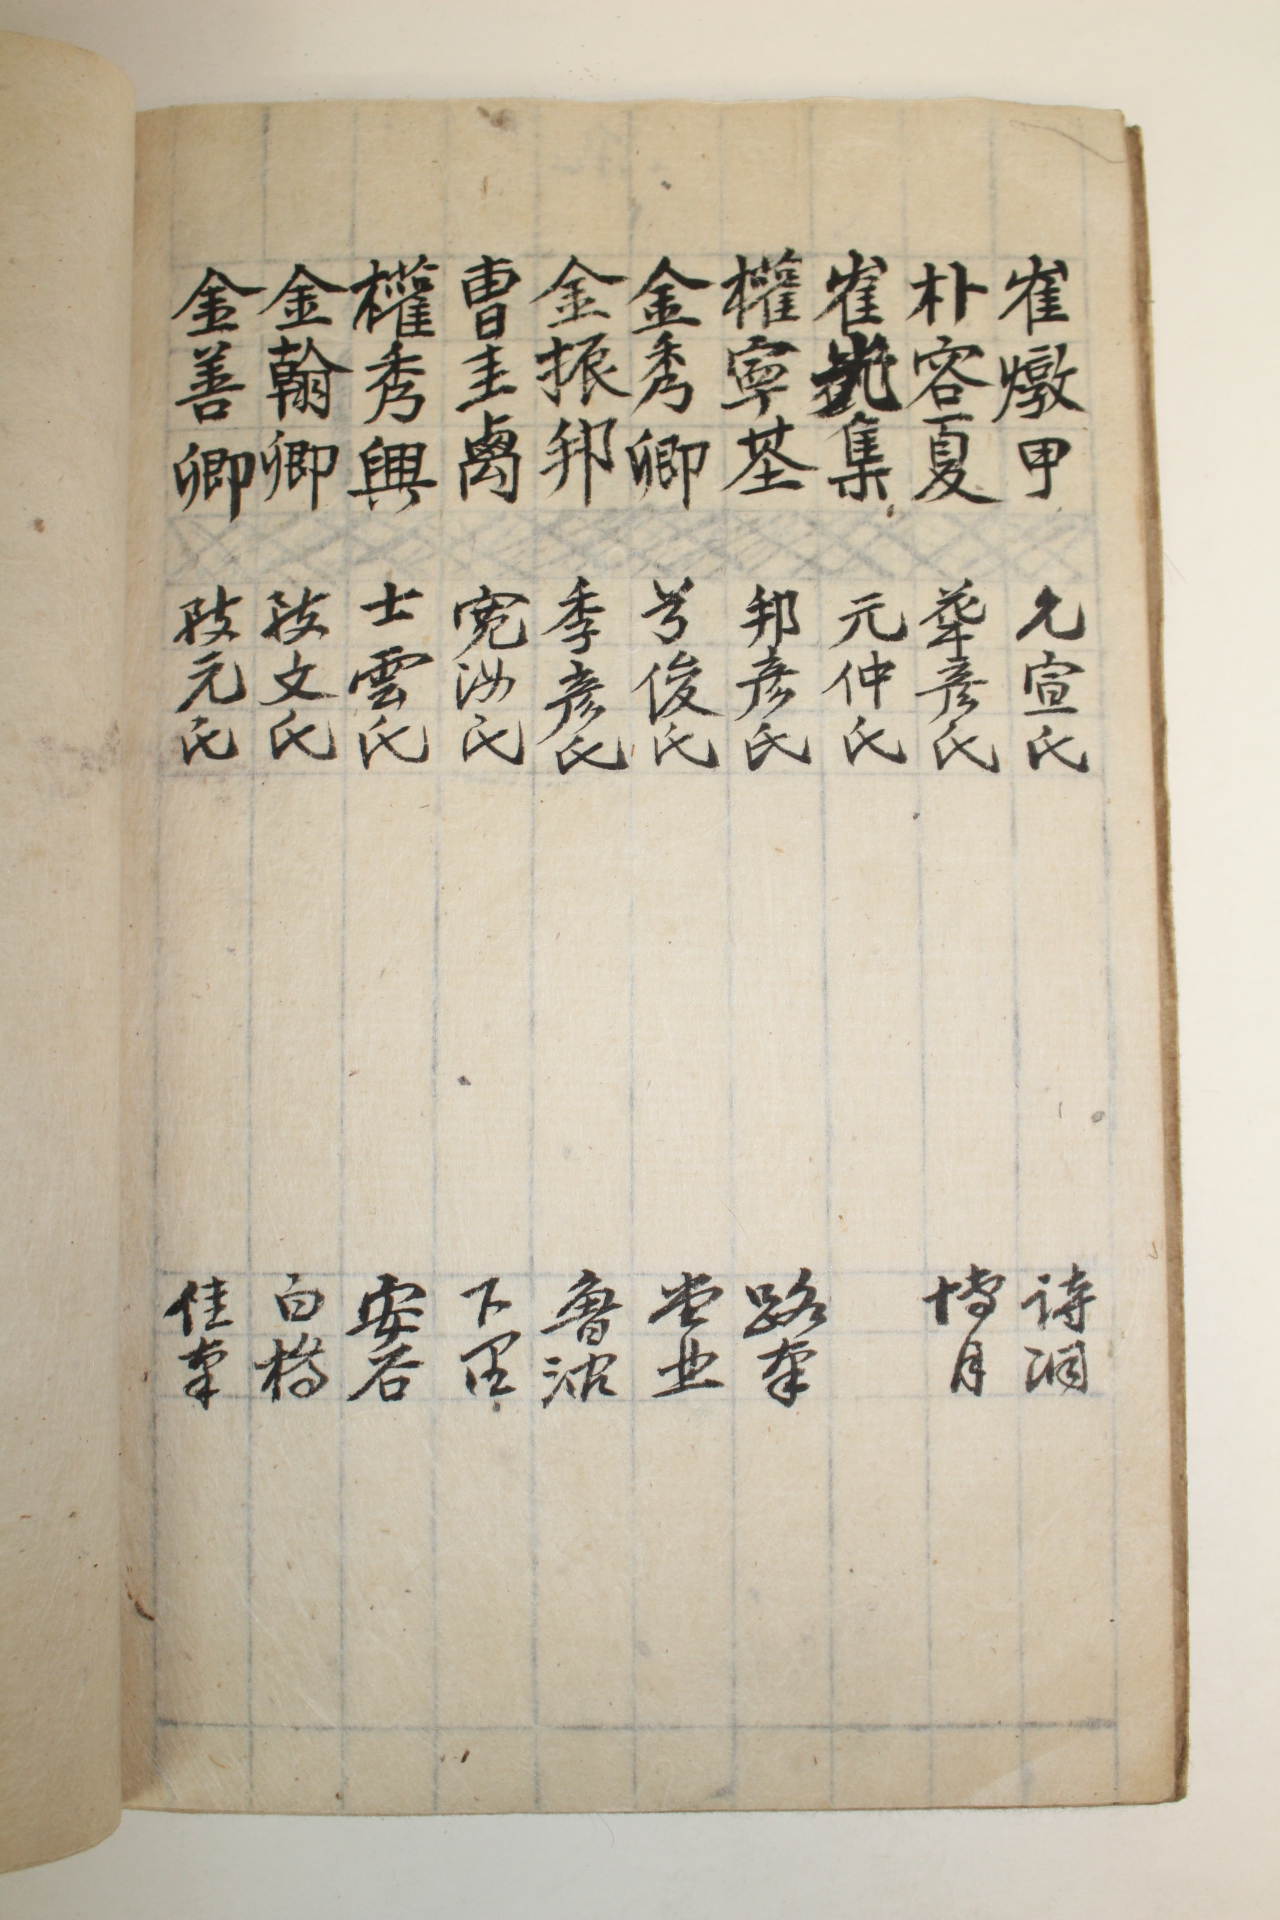 崔燉甲 允宣氏 詩洞
朴容夏 華彦氏 博月
崔 集 元仲氏
權寧基 邦彦氏 路東
金秀卿 兮俊氏
金振邦 季彦氏 魯沼
曺圭卨 宛汝氏 下里
權秀興 士雲氏 安谷
金翰卿 文氏 白橋
金善卿 元氏 佳